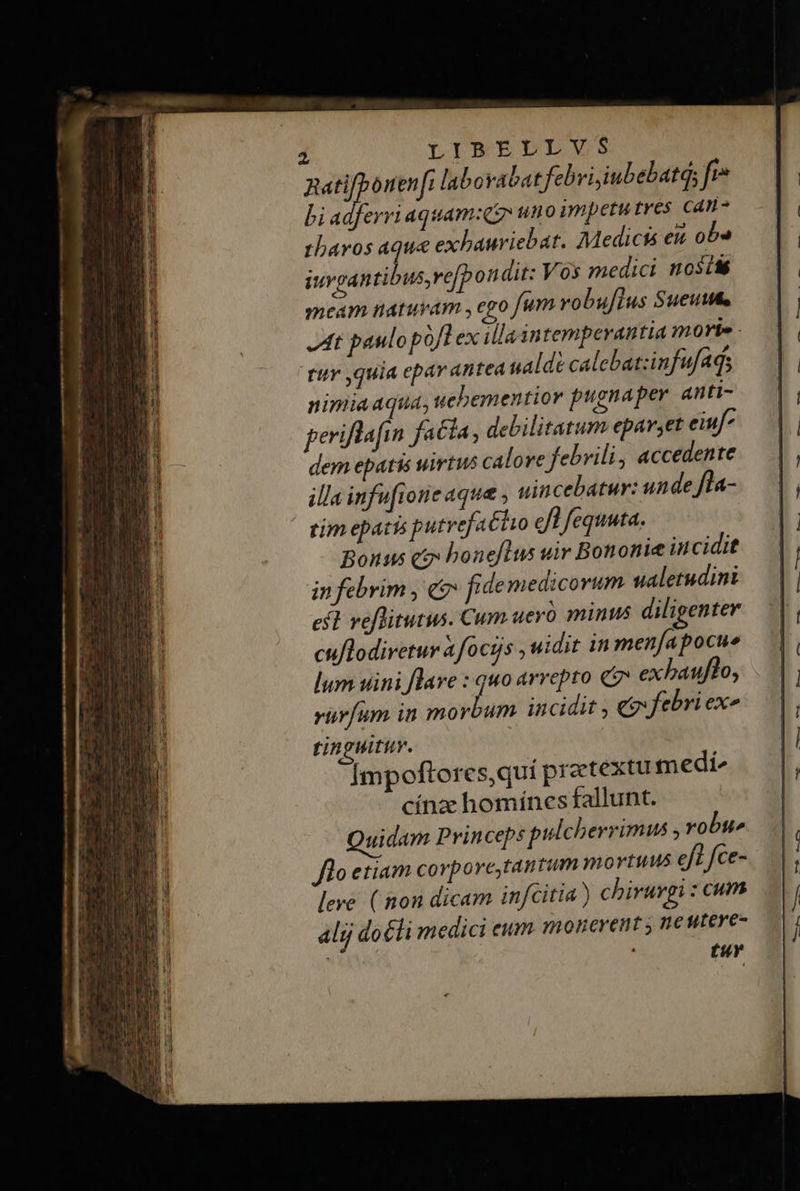 2 LIBELLVS
Ratisponensi laborabat febri, iubebatq; si-
bi adferri aquam: & uno impetu tres can-
tharos aquæ exhauriebat. Medicis eũ ob-
iurgantibus, respondit: Vos medici nostis
meam naturam, ego sum robustus Sueuus.
At paulo pòst ex illa intemperantia mori-
tur, quia epar antea ualdè calebat: infusaq;
nimia aqua, uehementior pugna per anti-
peristasin facta, debilitatum epar, et eius-
dem epatis uirtus calore febrili, accedente
illa infusione aquæ, uincebatur: unde sta-
tim epatis putrefactio est sequuta.
Bonus & honestus uir Bononiæ incidit
in febrim, & fide medicorum ualetudini
est restitutus. Cum uerò minus diligenter
custodiretur à socijs, uidit in mensa pocu-
lum uini stare: quo arrepto & exhausto,
rursum in morbum incidit, & febri ex-
tinguitur.
Impostores, qui prætextu medi-
cinæ homines fallunt.
Quidam Princeps pulcherrimus, robu-
sto etiam corpore, tantum mortuus est sce-
lere (non dicam inscitia) chirurgi: cum
alij docti medici eum monerent, ne utere-
tur